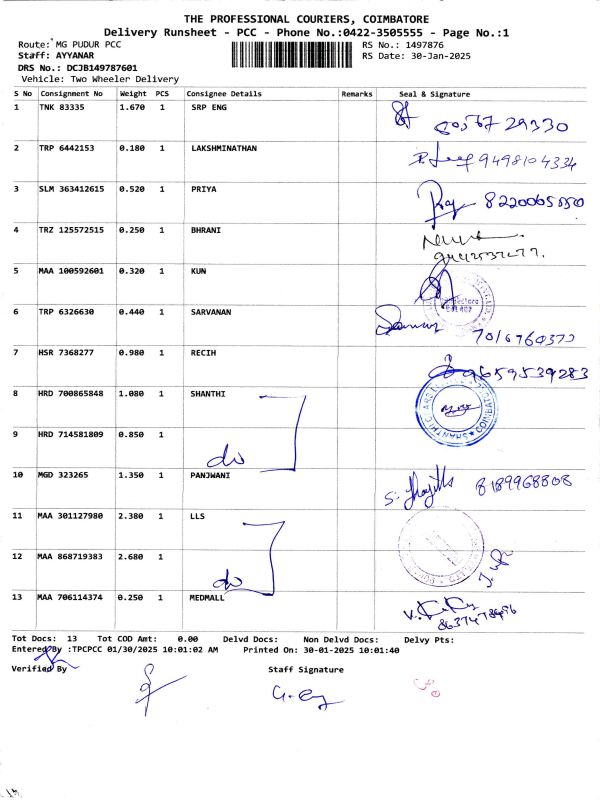 THE PROFESSIONAL COURIERS, COIMBATORE
Delivery Runsheet - PCC - Phone No.:0422-3505555 - Page No.:1
Route: MG PUDUR PCC RS No.: 1497876
Staff: AYYANAR RS Date: 30-Jan-2025
DRS No.: DCJB149787601
Vehicle: Two Wheeler Delivery
S No Consignment No Weight PCS Consignee Details Remarks Seal & Signature
1 TNK 83335 1.670 1 SRP ENG
2 TRP 6442153 0.180 1 LAKSHMINATHAN 9498104334
3 SLM 363412615 0.520 1 PRIYA
4 TRZ 125572515 0.250 1 BHRANI
5 MAA 100592601 0.320 1 KUN
6 TRP 6326630 0.440 1 SARVANAN
7 HSR 7368277 0.980 1 RECIH 9659539283
8 HRD 700865848 1.080 1 SHANTHI
9 HRD 714581809 0.850 1 do
10 MGD 323265 1.350 1 PANJWANI 8189968808
11 MAA 301127980 2.380 1 LLS
12 MAA 868719383 2.680 1 do
13 MAA 706114374 0.250 1 MEDMALL
Tot Docs: 13 Tot COD Amt: 0.00 Delvd Docs: Non Delvd Docs: Delvy Pts:
Entered By :TPCPCC 01/30/2025 10:01:02 AM Printed On: 30-01-2025 10:01:40
Verified By Staff Signature